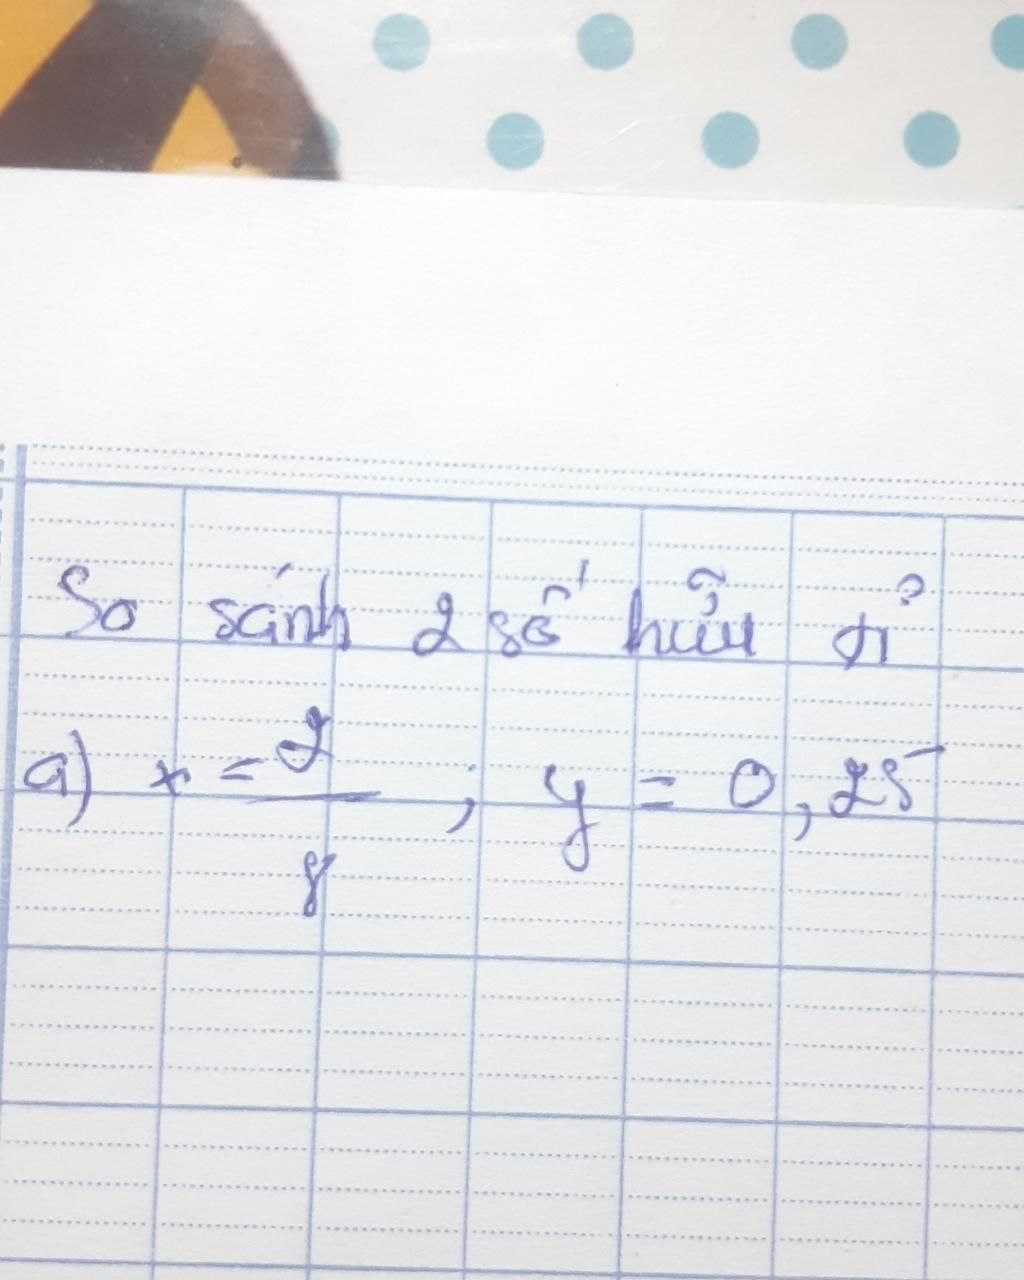 So sánh 2 số hữu tỉ
a) x = 2/8 ; y = 0,25